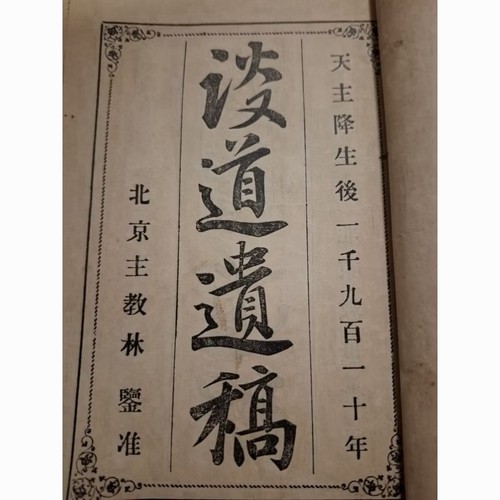 天主降生後一千九百一十年
談道遺稿
北京主教林 鑒准